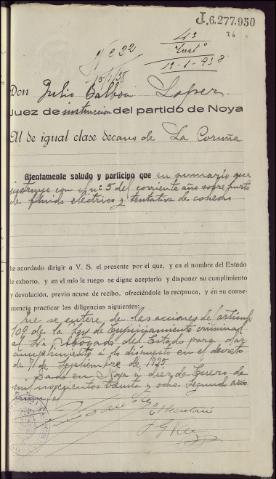 J.6.277.950
Nº 222
13-1-938
Don Julio Balboa López
Juez de instrucción del partido de Noya
Al de igual clase decano de La Coruña
Atentamente saludo y participo que en sumario que
instruyo con el nº 5 del corriente año sobre hurto
de fluido electrico y tentativa de cohecho
he acordado dirigir a V. S. el presente por el que, y en el nombre del Estado
le exhorto, y en el mío le ruego se digne aceptarlo y disponer su cumplimiento
y devolución, previo acuse de recibo, ofreciéndole la recíproca, y en su conse-
cuencia practicar las diligencias siguientes:
que se entere de las acciones del artículo
109 de la Ley de Enjuiciamiento criminal
al Sr. Abogado del Estado para dar
cumplimiento a lo dispuesto en el decreto
de 7 de Septiembre de 1935
Dado en Noya a diez de Enero de
mil novecientos treinta y ocho. Segundo año
triunfal